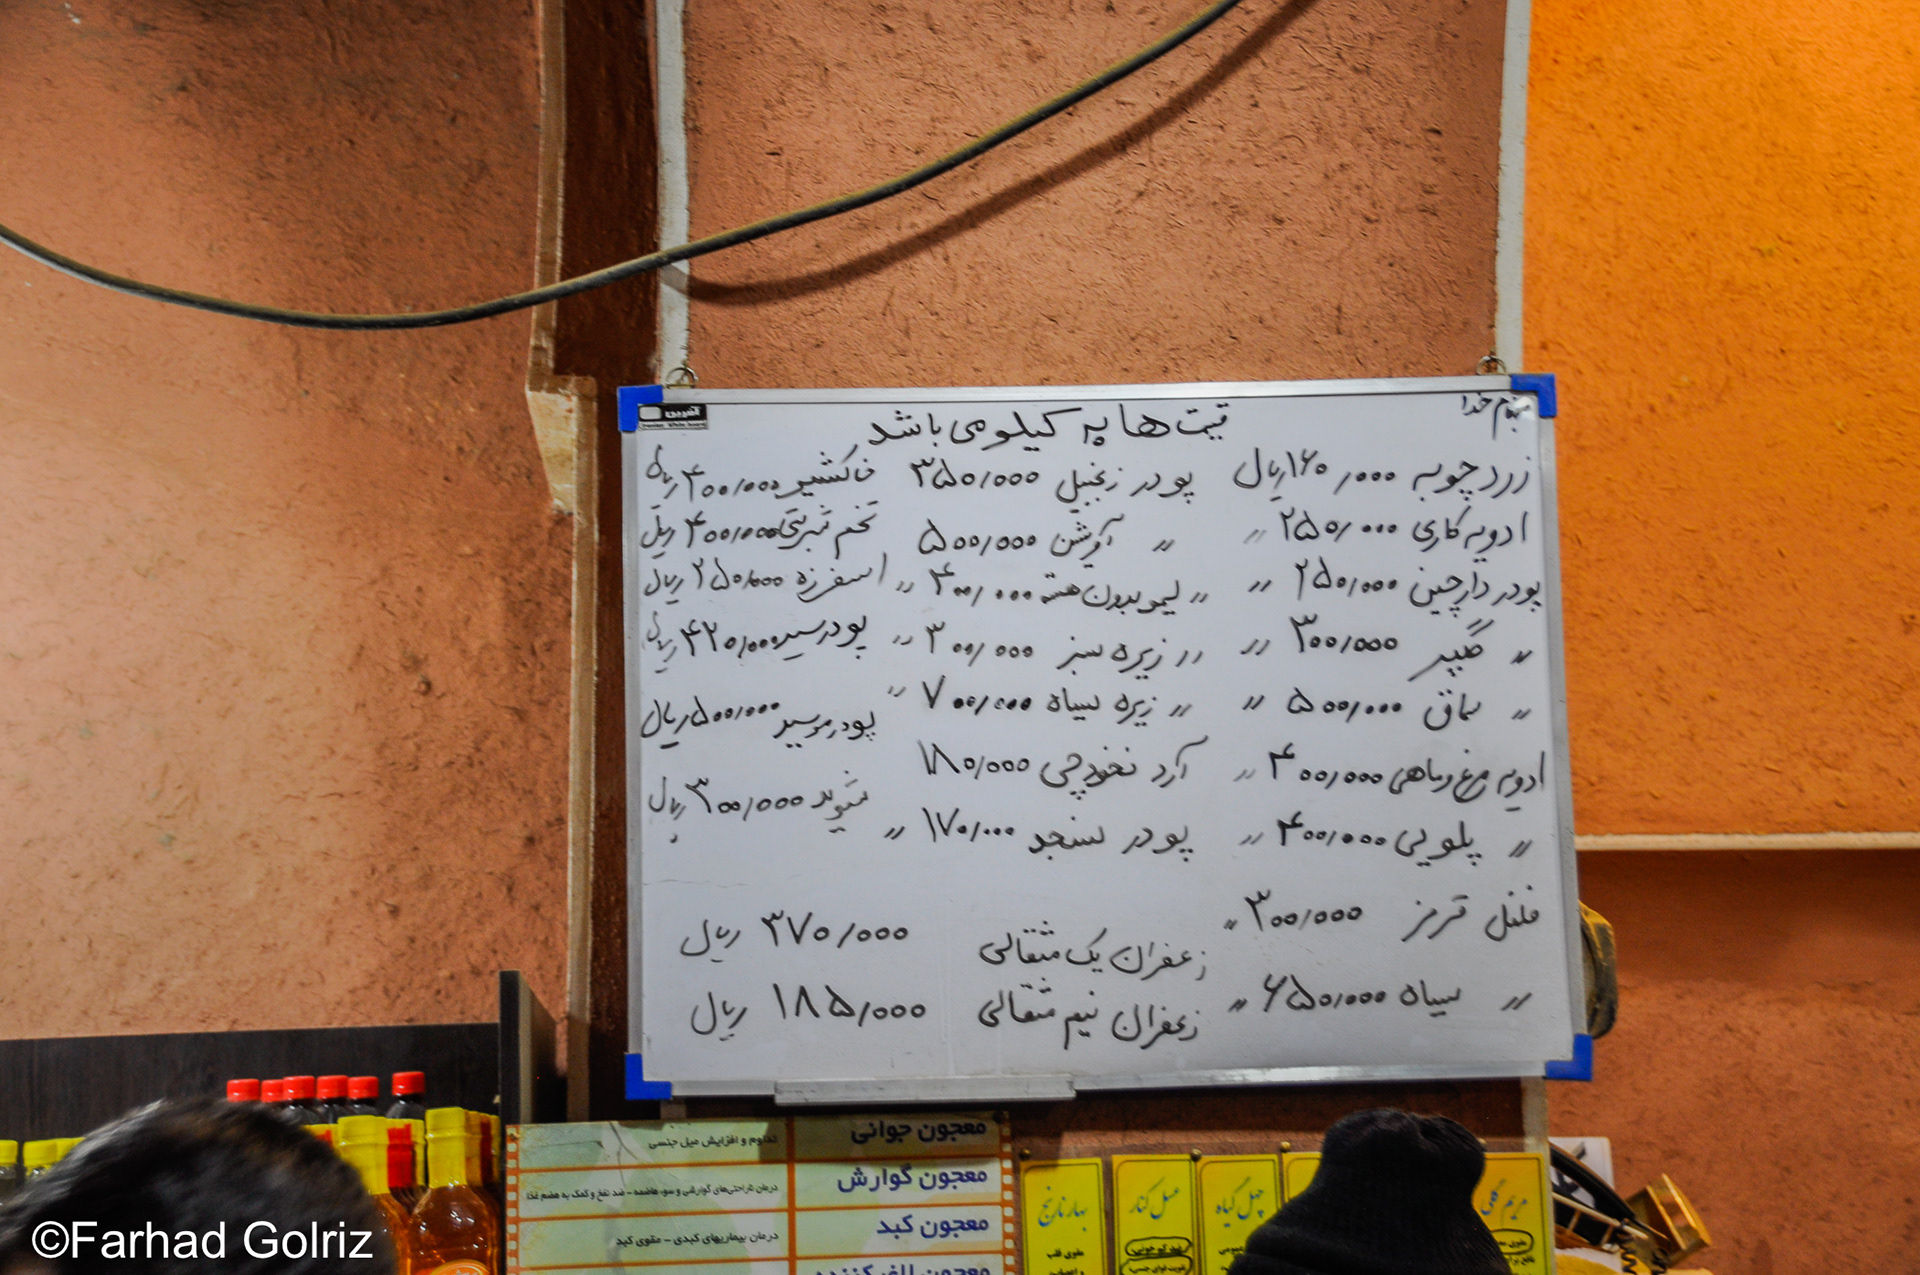 بنام خدا
قیمت ها به کیلو می باشد
زردچوبه ۱۶۰/۰۰۰ ریال
ادویه کاری ۲۵۰/۰۰۰ "
پودر دارچین ۲۵۰/۰۰۰ "
" ۳۰۰/۰۰۰ "
" سماق ۵۰۰/۰۰۰ "
ادویه مرغ و ماهی ۴۰۰/۰۰۰ "
" پلویی ۴۰۰/۰۰۰ "
فلفل قرمز ۳۰۰/۰۰۰ "
" سیاه ۶۵۰/۰۰۰ "
پودر زنجبیل ۳۵۰/۰۰۰
" آویشن ۵۰۰/۰۰۰
" لیمو بدون هسته ۴۰۰/۰۰۰ "
" زیره سبز ۳۰۰/۰۰۰ "
" زیره سیاه ۷۰۰/۰۰۰ "
آرد نخودچی ۱۸۰/۰۰۰
پودر سنجد ۱۷۰/۰۰۰ "
خاکشیر ۴۰۰/۰۰۰ ریال
تخم شربتی ۴۰۰/۰۰۰ ریال
اسفرزه ۲۵۰/۰۰۰ ریال
پودر سیر ۴۲۰/۰۰۰ ریال
پودر موسیر ۵۰۰/۰۰۰ ریال
شوید ۳۰۰/۰۰۰ ریال
زعفران یک مثقالی ۳۷۰/۰۰۰ ریال
زعفران نیم مثقالی ۱۸۵/۰۰۰ ریال
معجون جوانی
تداوم و افزایش میل جنسی
معجون گوارش
درمان ناراحتی‌های گوارشی و سوء هاضمه - ضد نفخ و کمک به هضم غذا
معجون کبد
درمان بیماریهای کبدی - مقوی کبد
معجون لاغر کننده
مریم گلی
چهل گیاه
عسل کنار
بهار نارنج
مقوی قلب
©Farhad Golriz